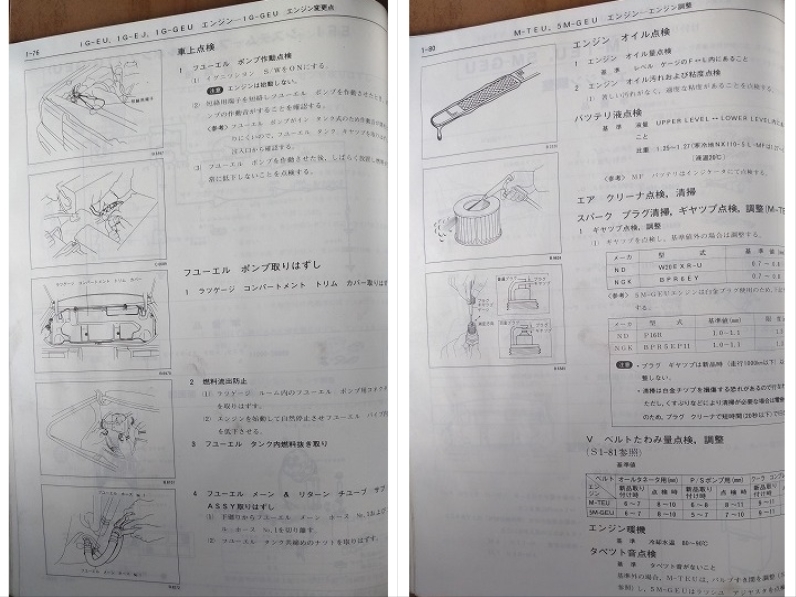 1-76
1G-EU, 1G-EJ, 1G-GEU エンジン—1G-GEU エンジン変更点
車上点検
1 フユーエル ポンプ作動点検
(1) イグニツシヨン S/WをONにする。
注意 エンジンは始動しない。
(2) 短絡用端子を短絡しフユーエル ポンプを作動させたとき、
ンプの作動音がすることを確認する。
(参考) フユーエル ポンプがイン タンク式のため作動音が
りにくいので、フユーエル タンク キヤツプを
注入口から確認する。
(3) フユーエル ポンプを作動させた後、しばらく放置し
常に低下しないことを点検する。
短絡用端子
フユーエル ポンプ取りはずし
1 ラツゲージ コンパートメント トリム カバー取りはず
ラツゲージ コンパートメント トリム カバー
2 燃料流出防止
(1) ラツゲージ ルーム内のフユーエル ポンプ用コネクタ
を取りはずす。
(2) エンジンを始動して自然停止させフユーエル パイプ
を低下させる。
3 フユーエル タンク内燃料抜き取り
4 フユーエル メーン & リターン チユーブ サブ
ASSY取りはずし
(1) 下廻りからフユーエル メーン ホース No.1および
ホース No.1を切り離す。
(2) フユーエル タンク共締めのナツトを取りはずす。
1-80
M-TEU, 5M-GEU エンジン—エンジン調整
エンジン オイル点検
1 エンジン オイル量点検
基準 レベル ゲージのF↔L内にあること
2 エンジン オイル汚れおよび粘度点検
(1) 著しい汚れがなく、適度な粘度があることを点検する。
バツテリ液点検
基準 液量 UPPER LEVEL ↔ LOWER LEVEL内に
こと
比重 1.25〜1.27(寒冷地NX110-5L・MFは
(液温20℃)
(参考) MF バツテリはインジケータにて点検する。
エア クリーナ点検, 清掃
スパーク プラグ清掃, ギヤツプ点検, 調整(M-TE
1 ギヤツプ点検, 調整
(1) ギヤツプを点検し、基準値外の場合は調整する。
メーカ 型 式 基 準 値
ND W20EXR-U 0.7〜0.8
NGK BPR6EY 0.7〜0.8
(参考) 5M-GEUエンジンは白金プラグ使用のため、
する。
メーカ 型 式 基準値(mm) 限
ND P16R 1.0〜1.1
NGK BPR5EP11 1.0〜1.1
注意 ・プラグ ギヤツプは新品時(走行1000km以下)以
整しない。
・清掃は白金チツプを損傷する恐れがあるので行な
ただし、くすぶりなどにより清掃が必要な場合は
のため、プラグ クリーナで短時間(20秒以下)で行
V ベルトたわみ量点検, 調整
(S1-81参照)
基準値
ベルト オールタネータ用(mm) P/Sポンプ用(mm) クーラ コンプ
エンジン 新品取り付け時 点検時 新品取り付け時 点検時 新品取り付け時
M-TEU 6〜7 8〜10 6〜8 8〜11 9〜11
5M-GEU 6〜7 8〜10 5〜7 7〜10 9〜11
エンジン暖機
基準 冷却水温 80〜95℃
タペツト音点検
基準 タペツト音がないこと
基準外の場合、M-TEUは、バルブすき間を調整(S
参照)し、5M-GEUはラツシユ アジヤスタを点